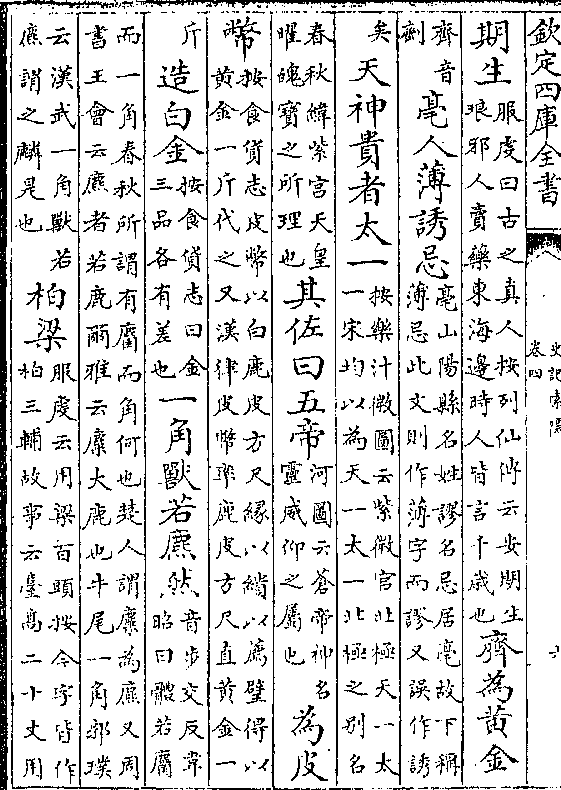 欽定四庫全書
史記索隱
卷四
期生服虔曰古之真人按列仙傳云安期生
琅邪人賣藥東海邊時人皆言千歲也齊為黃金
齊音
劑亳人薄誘忌亳山陽縣名姓謬名忌居亳故下稱
薄忌此文則作薄字而謬又誤作誘
矣天神貴者太一按樂汁微圖云紫微宮北極天一太
一宋均以為天一太一北極之別名
春秋緯紫宮天皇
曜魄寶之所理也其佐曰五帝河圖云蒼帝神名
靈威仰之屬也為皮
幣按食貨志皮幣以白鹿皮方尺緣以繢以薦璧得以
黃金一斤代之又漢律皮幣率鹿皮方尺直黃金一
斤造白金按食貨志曰金
三品各有差也一角獸若麃然音步交反韋
昭曰體若麕
而一角春秋所謂有麕而角何也楚人謂麋為麃又周
書王會云麃者若鹿爾雅云麋大鹿也牛尾一角郭璞
云漢武一角獸若
麃謂之麟是也柏梁服虔云用梁百頭按今字皆作
柏三輔故事云臺高二十丈用